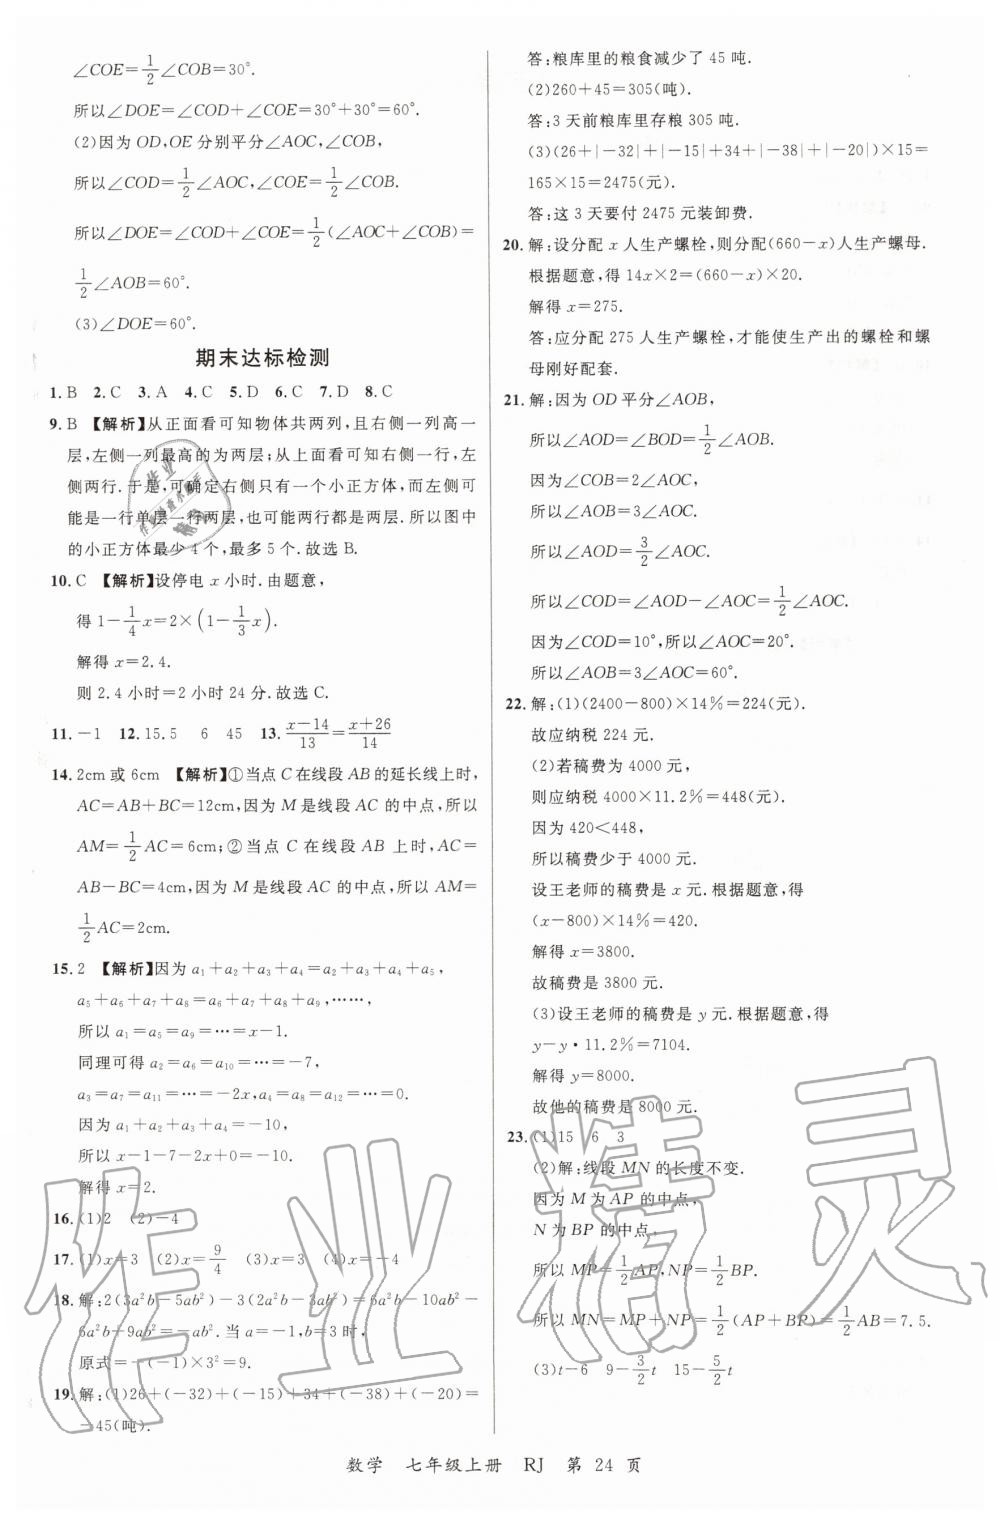 ∠COE=1/2∠COB=30°.
所以∠DOE=∠COD+∠COE=30°+30°=60°.
(2)因为 OD,OE 分别平分∠AOC,∠COB,
所以∠COD=1/2∠AOC,∠COE=1/2∠COB.
所以∠DOE=∠COD+∠COE=1/2(∠AOC+∠COB)=
1/2∠AOB=60°.
(3)∠DOE=60°.
期末达标检测
1. B 2. C 3. A 4. C 5. D 6. C 7. D 8. C
9. B 【解析】从正面看可知物体共两列,且右侧一列高一
层,左侧一列最高的为两层;从上面看可知右侧一行,左
侧两行.于是,可确定右侧只有一个小正方体,而左侧可
能是一行单层一行两层,也可能两行都是两层.所以图中
的小正方体最少 4 个,最多 5 个.故选 B.
10. C 【解析】设停电 x 小时.由题意,
得 1-1/4x=2×(1-1/3x).
解得 x=2.4.
则 2.4 小时=2 小时 24 分.故选 C.
11. -1 12. 15.5 6 45 13. (x-14)/13=(x+26)/14
14. 2cm 或 6cm 【解析】①当点 C 在线段 AB 的延长线上时,
AC=AB+BC=12cm,因为 M 是线段 AC 的中点,所以
AM=1/2AC=6cm;②当点 C 在线段 AB 上时,AC=
AB-BC=4cm,因为 M 是线段 AC 的中点,所以 AM=
1/2AC=2cm.
15. 2 【解析】因为 a₁+a₂+a₃+a₄=a₂+a₃+a₄+a₅,
a₅+a₆+a₇+a₈=a₆+a₇+a₈+a₉,……,
所以 a₁=a₅=a₉=…=x-1.
同理可得 a₂=a₆=a₁₀=…=-7,
a₃=a₇=a₁₁=…=-2x,a₄=a₈=a₁₂=…=0.
因为 a₁+a₂+a₃+a₄=-10,
所以 x-1-7-2x+0=-10.
解得 x=2.
16. (1)2 (2)-4
17. (1)x=3 (2)x=9/4 (3)x=3 (4)x=-4
18. 解:2(3a²b-5ab²)-3(2a²b-3ab²)=6a²b-10ab²-
6a²b+9ab²=-ab².当 a=-1,b=3 时,
原式=-(-1)×3²=9.
19. 解:(1)26+(-32)+(-15)+34+(-38)+(-20)=
-45(吨).
答:粮库里的粮食减少了 45 吨.
(2)260+45=305(吨).
答:3 天前粮库里存粮 305 吨.
(3)(26+|-32|+|-15|+34+|-38|+|-20|)×15=
165×15=2475(元).
答:这 3 天要付 2475 元装卸费.
20. 解:设分配 x 人生产螺栓,则分配(660-x)人生产螺母.
根据题意,得 14x×2=(660-x)×20.
解得 x=275.
答:应分配 275 人生产螺栓,才能使生产出的螺栓和螺
母刚好配套.
21. 解:因为 OD 平分∠AOB,
所以∠AOD=∠BOD=1/2∠AOB.
因为∠COB=2∠AOC,
所以∠AOB=3∠AOC.
所以∠AOD=3/2∠AOC.
所以∠COD=∠AOD-∠AOC=1/2∠AOC.
因为∠COD=10°,所以∠AOC=20°.
所以∠AOB=3∠AOC=60°.
22. 解:(1)(2400-800)×14%=224(元).
故应纳税 224 元.
(2)若稿费为 4000 元,
则应纳税 4000×11.2%=448(元).
因为 420<448,
所以稿费少于 4000 元.
设王老师的稿费是 x 元.根据题意,得
(x-800)×14%=420.
解得 x=3800.
故稿费是 3800 元.
(3)设王老师的稿费是 y 元.根据题意,得
y-y·11.2%=7104.
解得 y=8000.
故他的稿费是 8000 元.
23. (1)15 6 3
(2)解:线段 MN 的长度不变.
因为 M 为 AP 的中点,
N 为 BP 的中点,
所以 MP=1/2AP,NP=1/2BP.
所以 MN=MP+NP=1/2(AP+BP)=1/2AB=7.5.
(3)t-6 9-3/2t 15-5/2t
数学 七年级上册 RJ 第 24 页
作业精灵